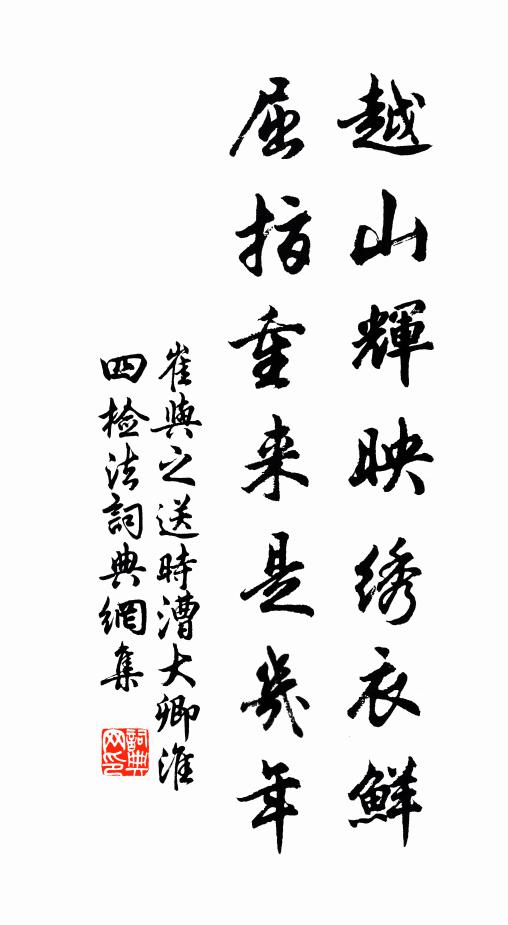 越山輝映绣衣鮮
屈指重来是幾年
崔與之送時漕大卿淮
四检法詞典網集
詞典
网印